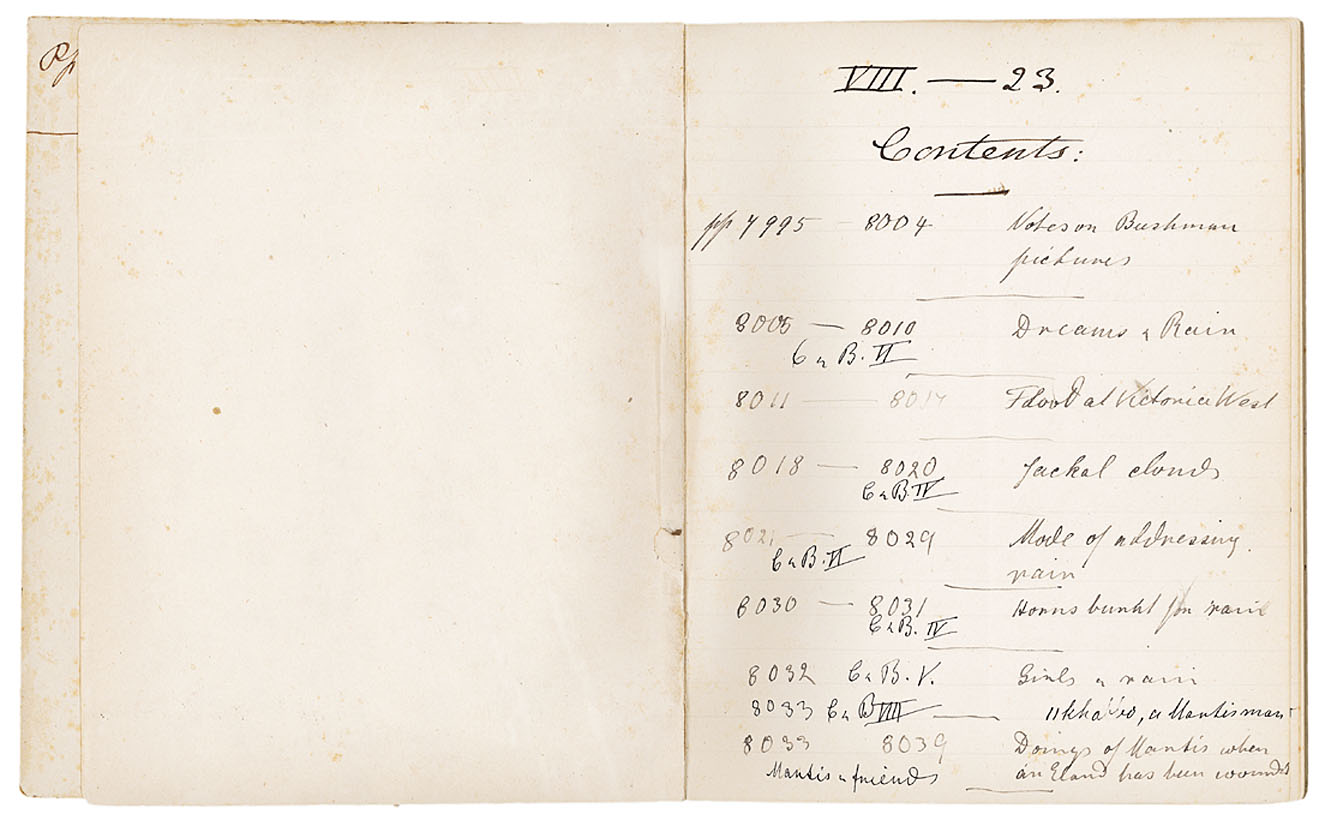 Pp
VIII. — 23.
Contents:
pp 7995 — 8004 Notes on Bushman
pictures
8005 — 8010 Dreams & Rain
C & B. II
8011 — 8017 Flood at Victoria West
8018 — 8020 Jackal clouds
C & B. IV
8021 — 8029 Mode of addressing
C & B. VI
rain
8030 — 8031 Horns burnt for rain
C & B. IV
8032 C & B. V. Girls & rain
8033 C & B VIII — a Mantis man
8033 8039 Doings of Mantis when
Mantis & friends an Eland has been wounded